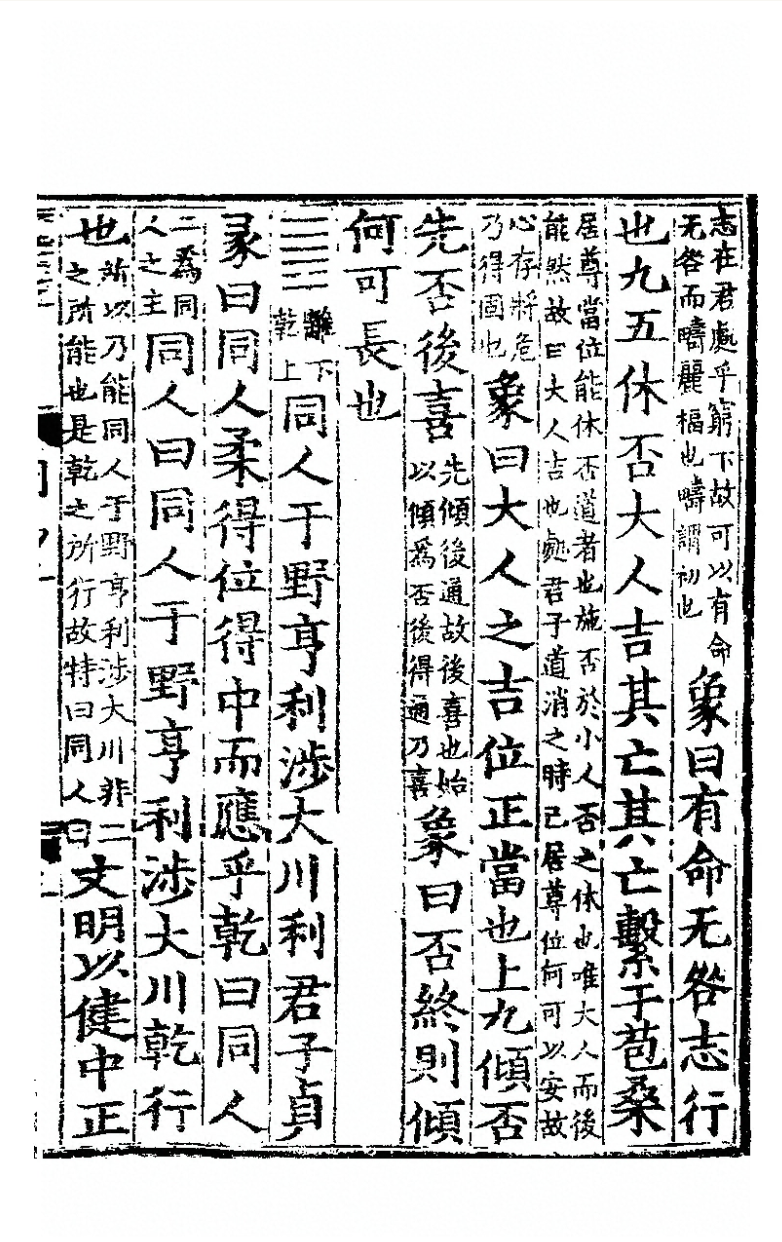 志在君處乎窮下故可以有命
无咎而疇麗福也疇謂初也
象曰有命无咎志行
也九五休否大人吉其亡其亡繫于苞桑
居尊當位能休否道者也施否於小人否之休也唯大人而後
能然故曰大人吉也處君子道消之時己居尊位何可以安故
心存將危
乃得固也
象曰大人之吉位正當也上九傾否
先否後喜
先傾後通故後喜也始
以傾爲否後得通乃喜
象曰否終則傾
何可長也
離下
乾上
同人于野亨利涉大川利君子貞
彖曰同人柔得位得中而應乎乾曰同人
二爲同
人之主
同人曰同人于野亨利涉大川乾行
也
所以乃能同人于野亨利涉大川非二
之所能也是乾之所行故特曰同人曰
文明以健中正